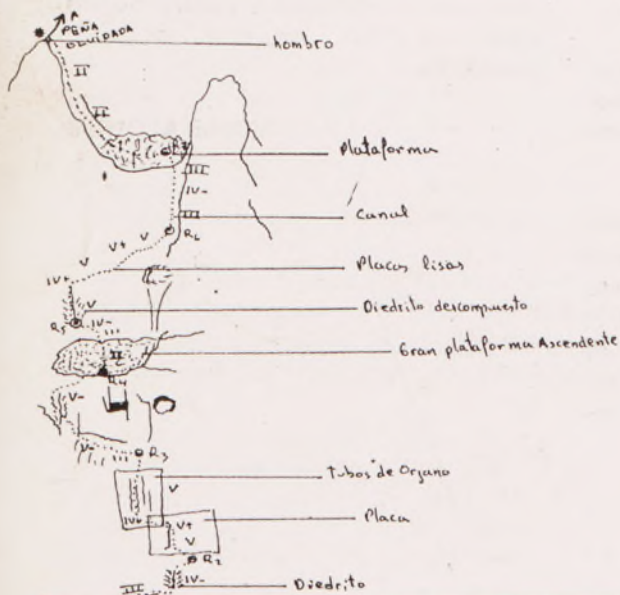 A
PEÑA
OLVIDADA
hombro
II
II
R7
Plataforma
III
IV-
III
Canal
R6
V
V+
V
Placas lisas
IV+
V
Diedrito descompuesto
R5
IV-
III
Gran plataforma Ascendente
II
R4
V-
V-
III
R3
Tubos de Organo
V
IV+
V+
Placa
V
R2
IV-
III
Diedrito